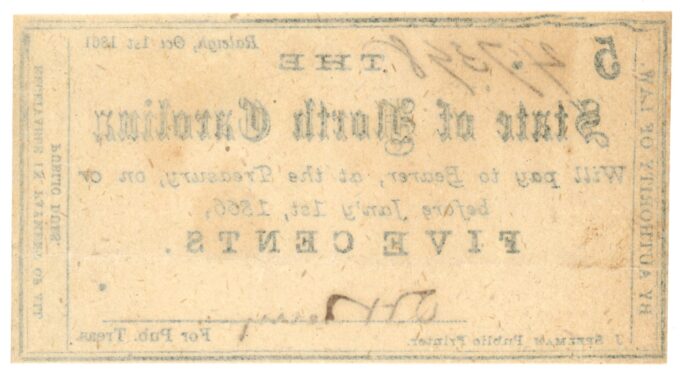 5
Raleigh, Oct 1st 1861
THE
State of North Carolina
Will pay to Bearer, at the Treasury, on or
before Jan'y 1st, 1866,
FIVE CENTS.
For Pub. Treas.
J SPELMAN Public Printer.
BY AUTHORITY OF LAW.
RECEIVABLE IN PAYMENT OF ALL
PUBLIC DUES.